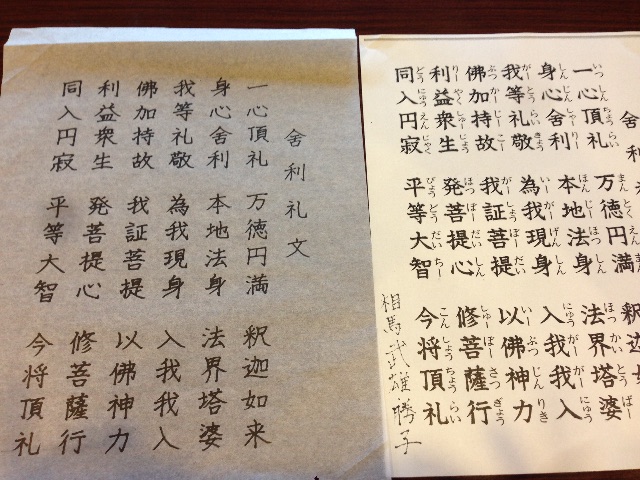 舎利礼文
一心頂礼 万徳円満 釈迦如来
身心舎利 本地法身 法界塔婆
我等礼敬 為我現身 入我我入
佛加持故 我証菩提 以佛神力
利益衆生 発菩提心 修菩薩行
同入円寂 平等大智 今将頂礼
舎利
一心頂礼 万徳円満 釈迦如
身心舎利 本地法身 法界塔婆
我等礼敬 為我現身 入我我入
佛加持故 我証菩提 以佛神力
利益衆生 発菩提心 修菩薩行
同入円寂 平等大智 今将頂礼
相馬武雄勝子